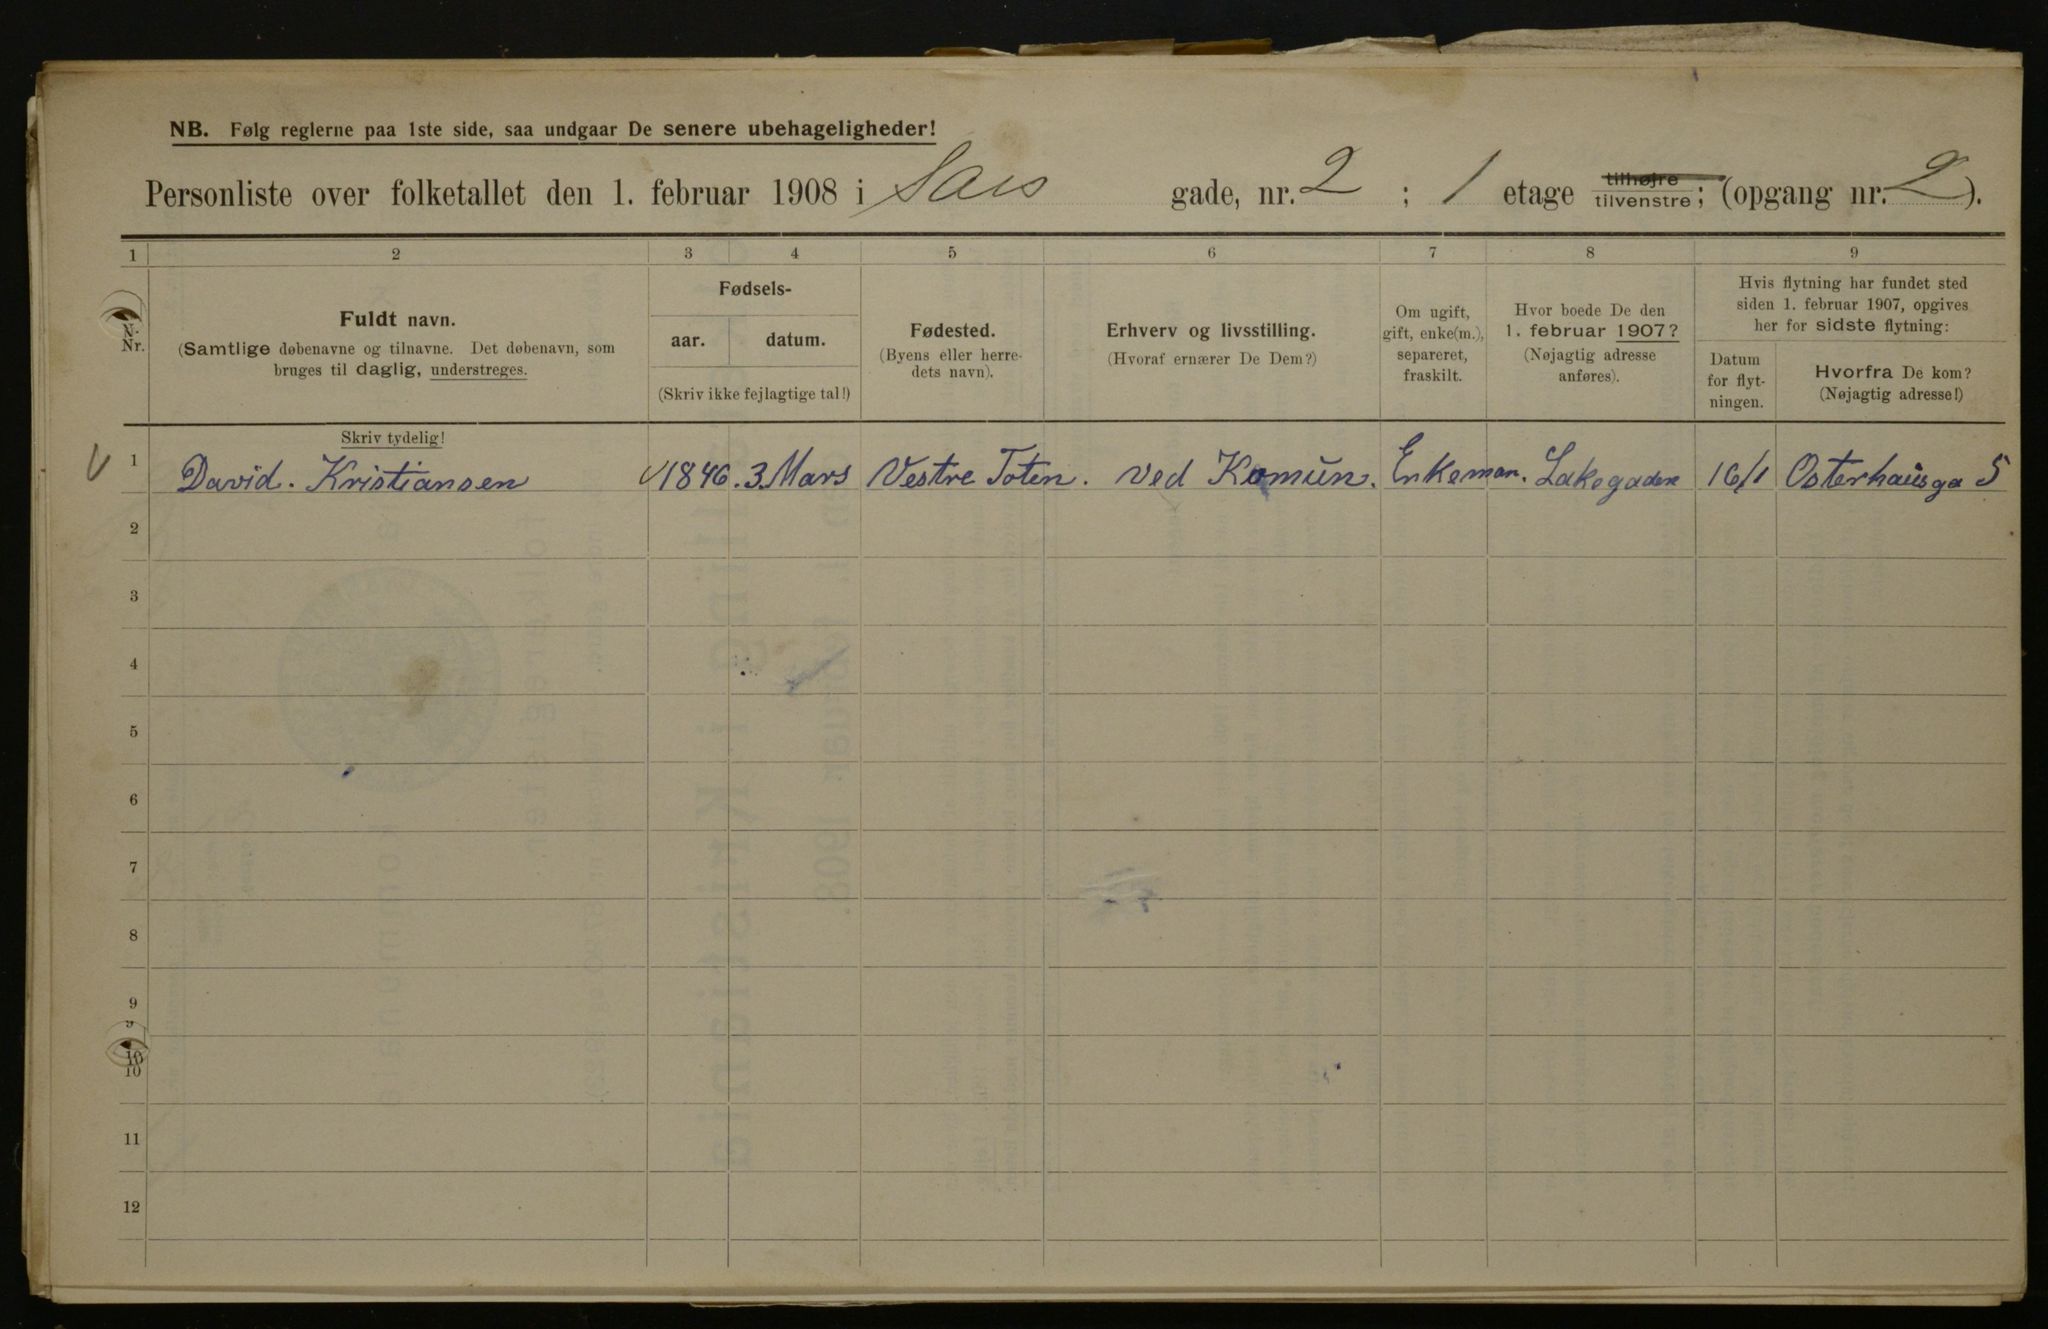 NB. Følg reglerne paa 1ste side, saa undgaar De senere ubehageligheder!
Personliste over folketallet den 1. februar 1908 i Sars gade, nr. 2 ; 1 etage tilhøjre tilvenstre; (opgang nr. 2).
1 2 3 4 5 6 7 8 9
N.
Nr.
Fuldt navn.
(Samtlige døbenavne og tilnavne. Det døbenavn, som
bruges til daglig, understreges.
Skriv tydelig!
Fødsels-
aar. datum.
(Skriv ikke fejlagtige tal!)
Fødested.
(Byens eller herre-
dets navn).
Erhverv og livsstilling.
(Hvoraf ernærer De Dem?)
Om ugift,
gift, enke(m.),
separeret,
fraskilt.
Hvor boede De den
1. februar 1907?
(Nøjagtig adresse
anføres).
Hvis flytning har fundet sted
siden 1. februar 1907, opgives
her for sidste flytning:
Datum
for flyt-
ningen.
Hvorfra De kom?
(Nøjagtig adresse!)
1 David. Kristiansen 1846. 3. Mars Vestre Toten. ved Komun. Enkeman. Lakegaden 16/1 Osterhausga 5
2
3
4
5
6
7
8
9
9
10
10
11
12